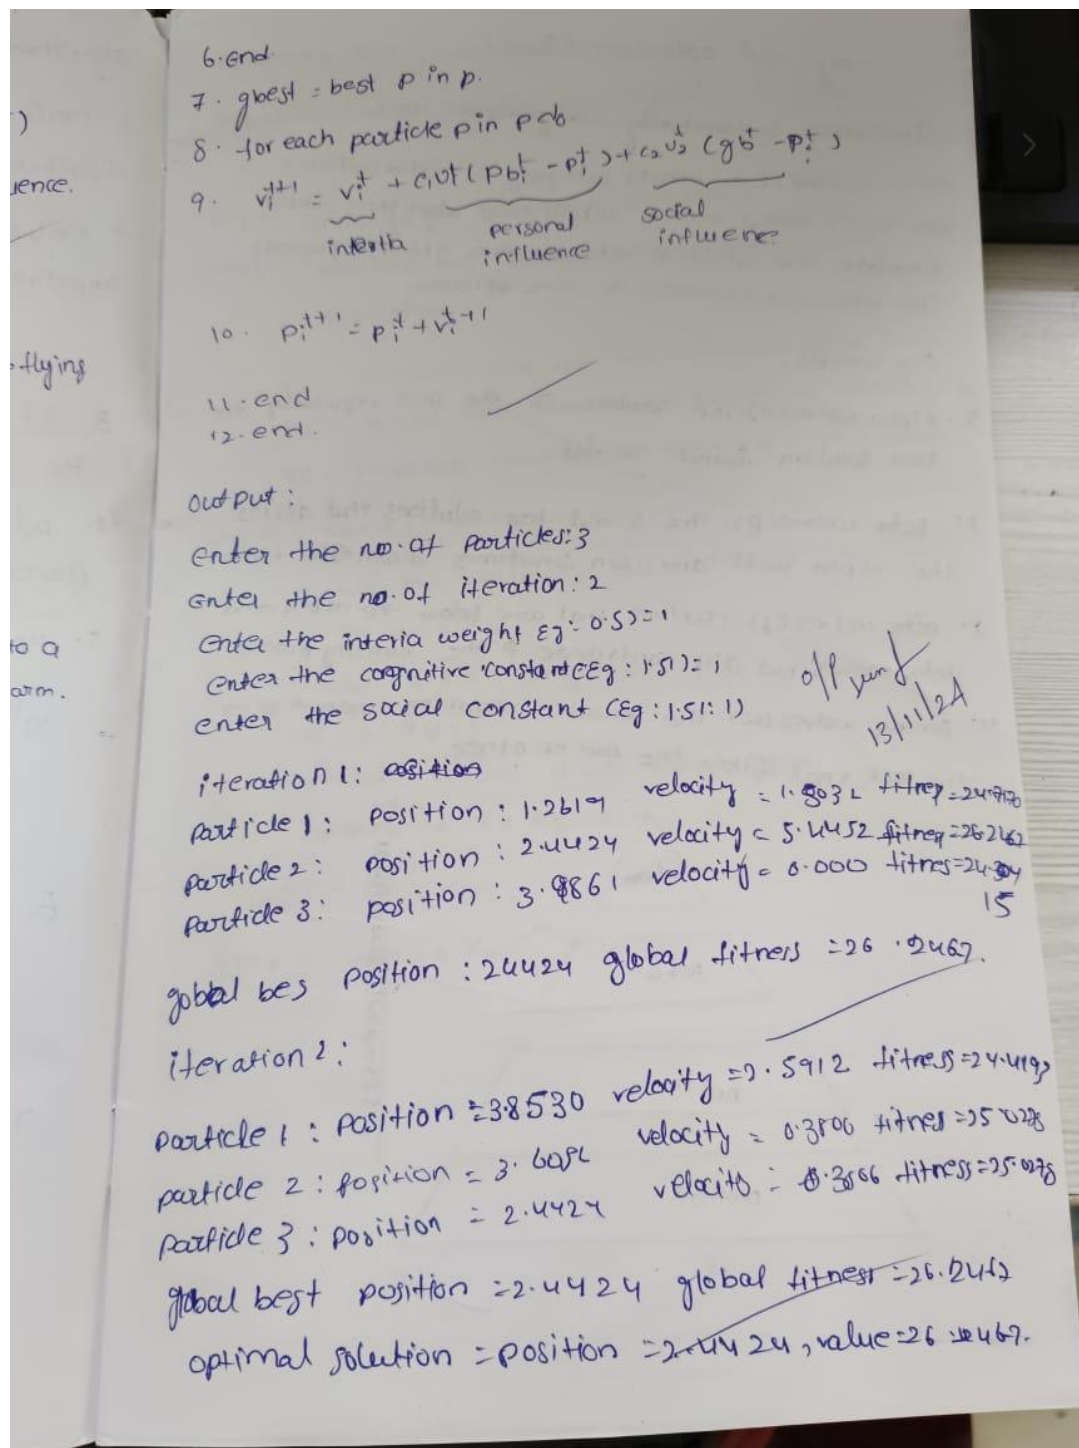 )
ience.
flying
to a
arm.
6. end.
7. gbest = best p in p.
8. for each particle p in p do
9. vi^t+1 = vi^t + c1 U1^t (pbi^t - pi^t) + c2 U2^t (gb^t - pi^t)
personal
influence
social
10. pi^t+1 = pi^t + vi^t+1
11. end
12. end.
output:
enter the no. of particles: 3
Enter the no. of iteration: 2
Enter the interia weight Eg: 0.5) = 1
enter the cognitive constant (Eg: 1.5) = 1
enter the social constant (Eg: 1.51: 1)
13/11/24
iteration 1:
particle 1: position : 1.2619 velocity =
particle 2: position : 2.4424 velocity = 5.4452
particle 3: position : velocity = 0.000
15
bes position : 24424 global fitness = 26.2467.
iteration 2:
particle 1: position = 3.8530 velocity = 2.5912 fitness =
particle 2: position = velocity =
particle 3: position = 2.4424 fitness =
global best position = 2.4424 global fitness =
optimal solution = position = 2.4424, value =